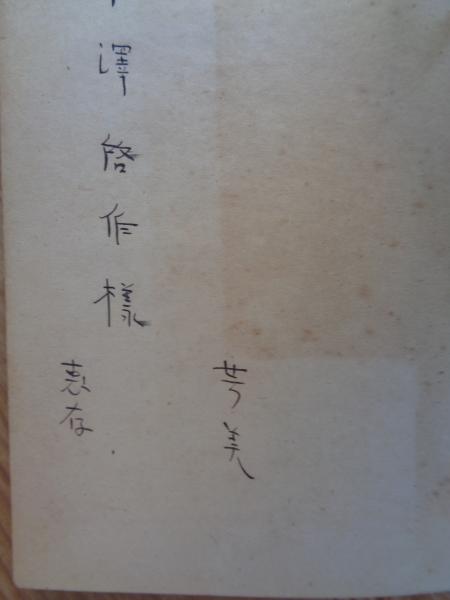 芳美
澤啓作様
恵存